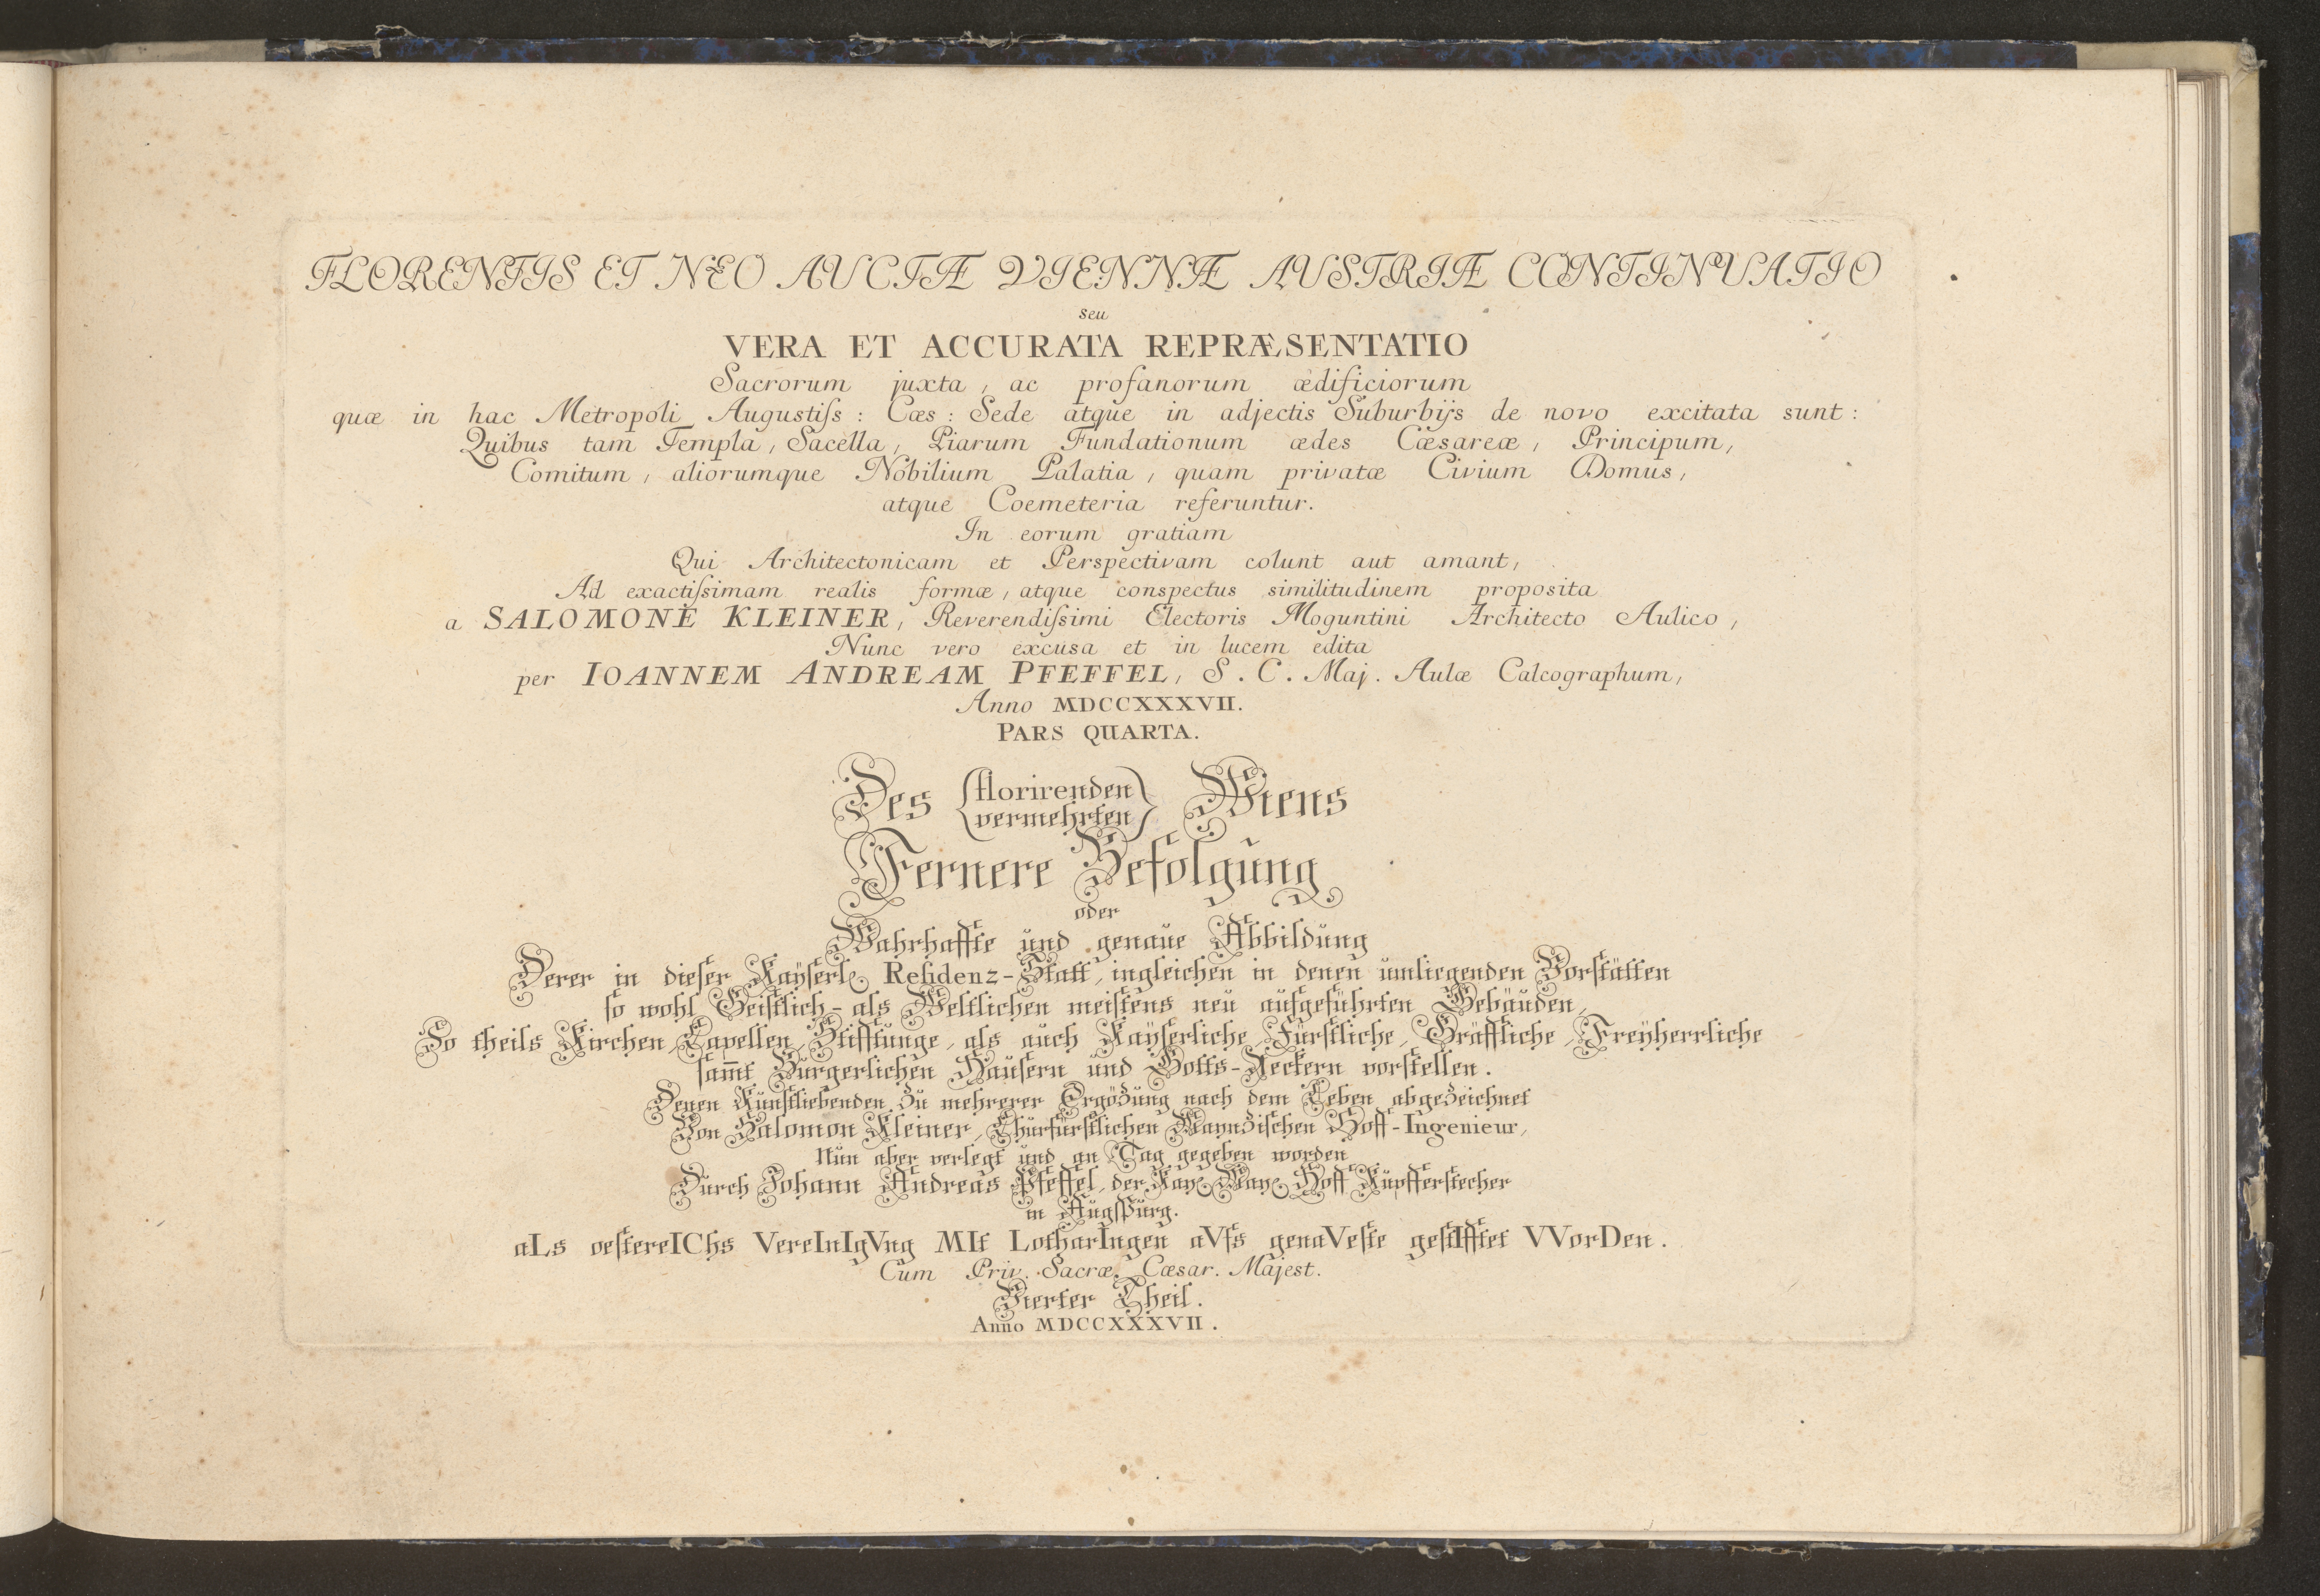 FLORENTIS ET NEO AUCTÆ VIENNÆ AUSTRIÆ CONTINUATIO
seu
VERA ET ACCURATA REPRÆSENTATIO
Sacrorum juxta, ac profanorum ædificiorum
quæ in hac Metropoli Augustiſs: Cæs: Sede atque in adjectis Suburbijs de novo excitata sunt:
Quibus tam Templa, Sacella, Piarum Fundationum ædes Cæsareæ, Principum,
Comitum, aliorumque Nobilium Palatia, quam privatæ Civium Domus,
atque Coemeteria referuntur.
In eorum gratiam
Qui Architectonicam et Perspectivam colunt aut amant,
Ad exactiſsimam realis formæ, atque conspectus similitudinem proposita
a SALOMONE KLEINER, Reverendiſsimi Electoris Moguntini Architecto Aulico,
Nunc vero excusa et in lucem edita
per IOANNEM ANDREAM PFEFFEL, S. C. Maj. Aulæ Calcographum,
Anno MDCCXXXVII.
PARS QUARTA.
Des {florirenden vermehrten} Wiens
Fernere Befolgung
oder
Wahrhaffte und genaue Abbildung
Derer in dieſer Kayſerl. Reſidenz-Statt, ingleichen in denen umliegenden Vorſtätten
ſo wohl Geiſtlich- als Weltlichen meiſtens neu aufgeführten Gebäuden,
So theils Kirchen, Capellen, Stifftunge, als auch Kaÿſerliche, Fürſtliche, Gräffliche, Freÿherrliche
ſam̅t Burgerlichen Häuſern und Gotts-Aeckern vorſtellen.
Denen Kunſtliebenden zu mehrerer Ergözung nach dem Leben abgezeichnet
Von Salomon Kleiner, Churfürſtlichen Maynziſchen Hoff-Ingenieur,
Nun aber verlegt und an Tag gegeben worden
Durch Johann Andreas Pfeffel, der Kay. May. Hoff Kupfferſtecher
in Augſpurg.
aLs oeſtereIChs VereInIgVng MIt LotharIngen aVfs genaVeſte geſtIfftet VVorDen.
Cum Priv. Sacræ Cæsar. Majest.
Vierter Theil.
Anno MDCCXXXVII.